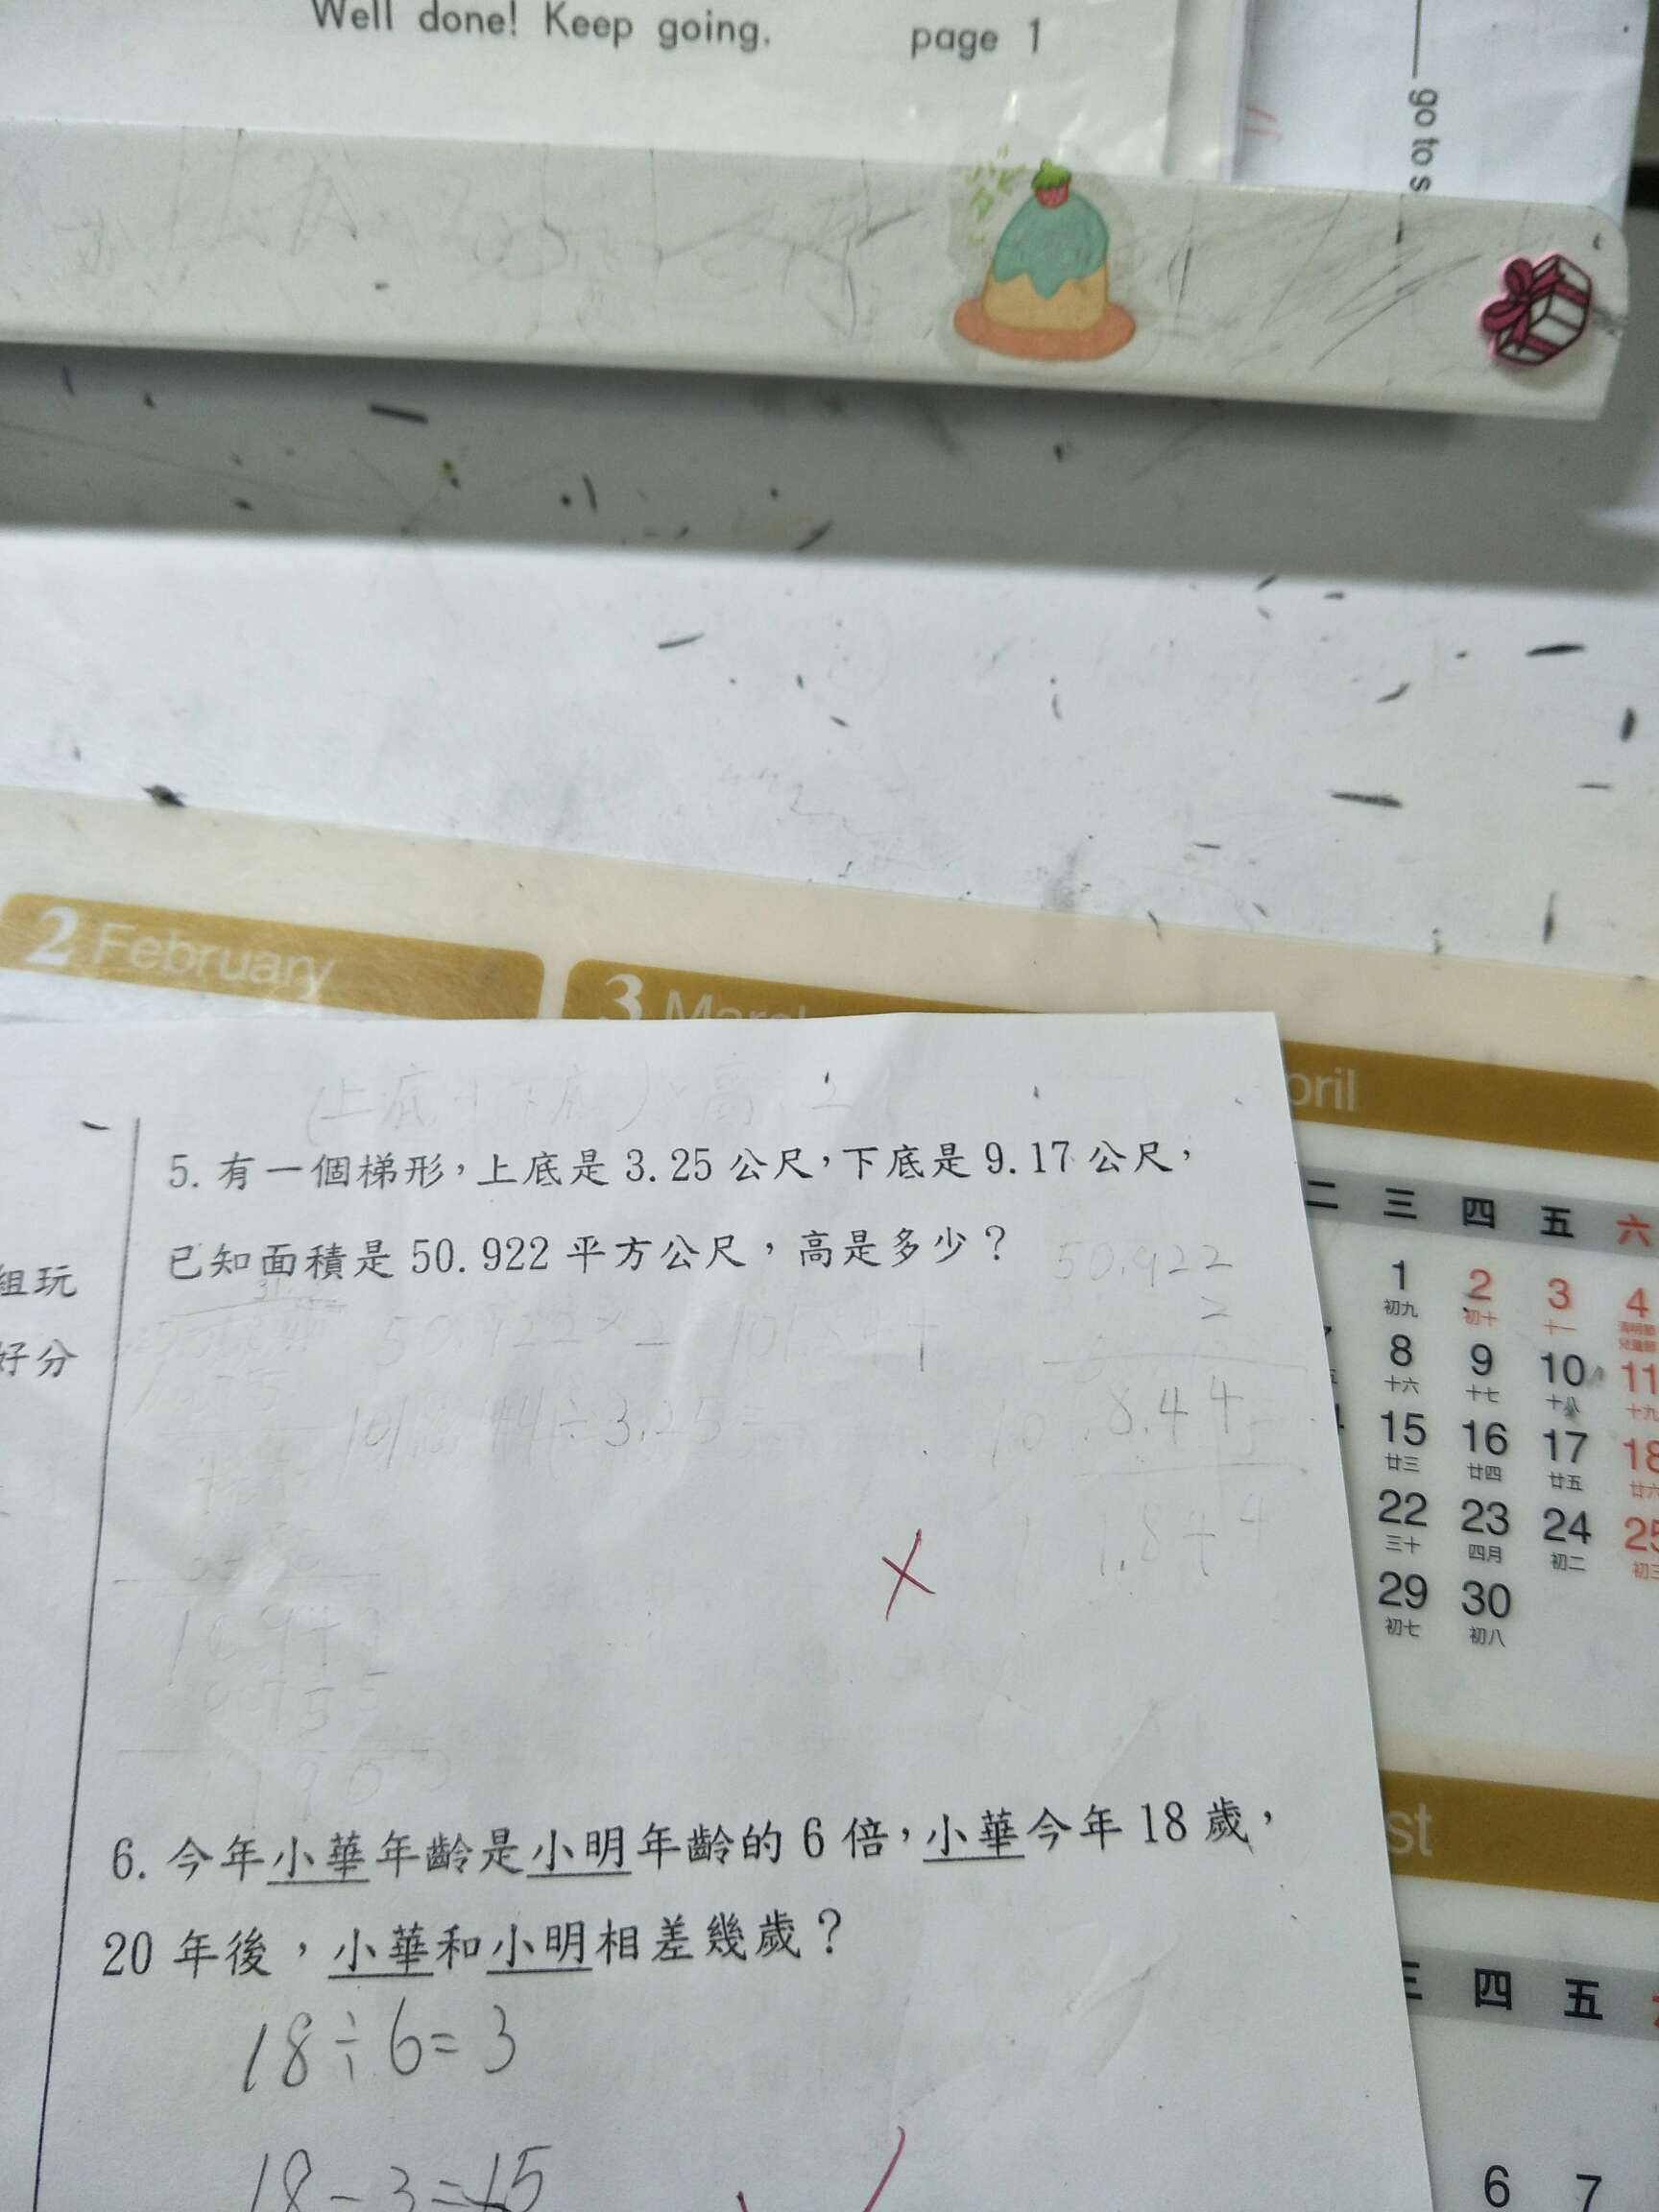 Well done! Keep going. page 1
go to s
2 February
3 March
pril
(上底+下底)×高÷2
5. 有一個梯形，上底是 3.25 公尺，下底是 9.17 公尺，
已知面積是 50.922 平方公尺，高是多少？
50.922
2
50.922×2
101.844÷3.25=
組玩
好分
6. 今年小華年齡是小明年齡的 6 倍，小華今年 18 歲，
20 年後，小華和小明相差幾歲？
18÷6=3
18-3=15
二 三 四 五 六
1 2 3 4
初九 初十 十一
8 9 10 11
十六 十七 十八 十九
15 16 17 18
廿三 廿四 廿五 廿六
22 23 24 25
三十 四月 初二 初三
29 30
初七 初八
st
三 四 五
6 7